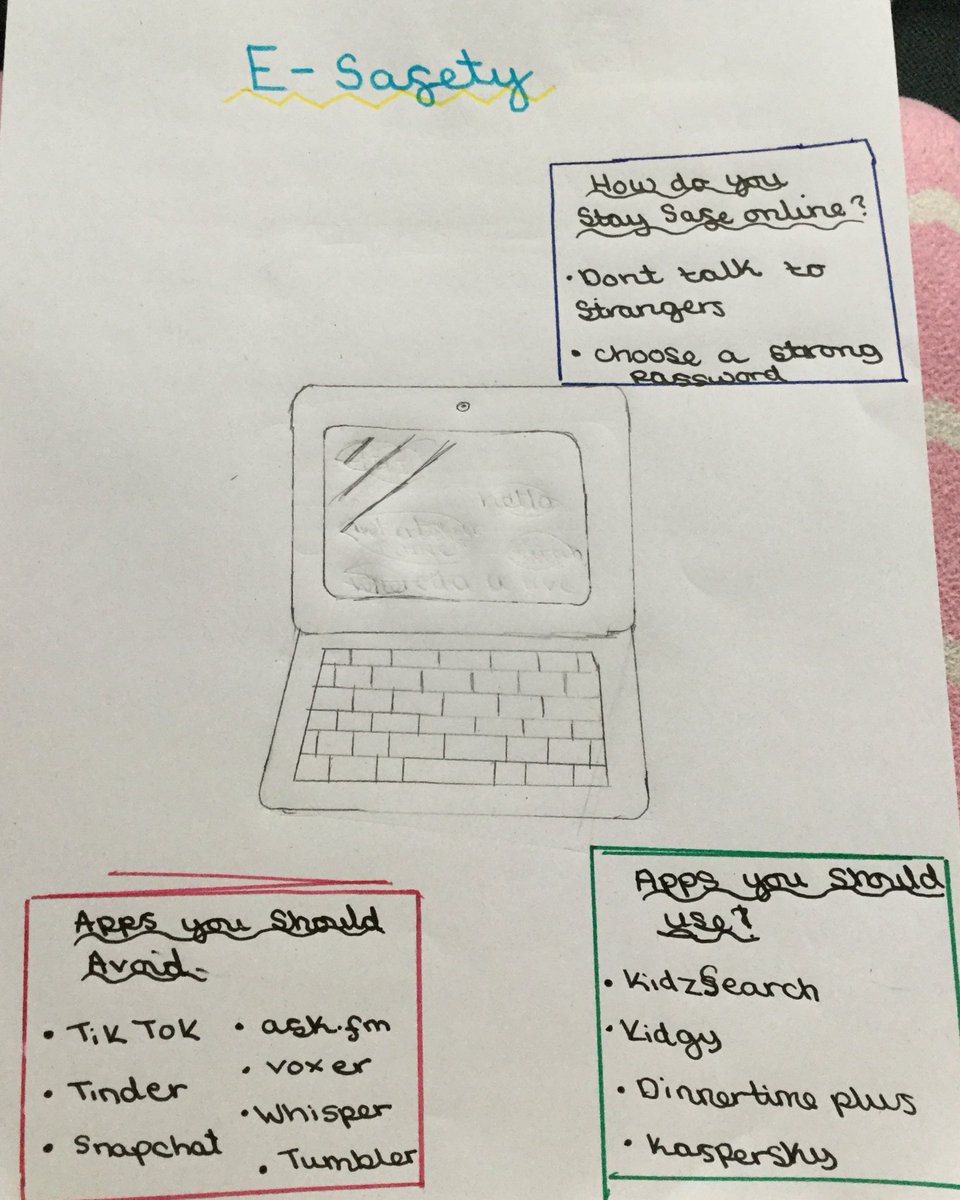 E-Safety
How do you
Stay Safe online?
• Dont talk to
Strangers
• choose a strong
password
hello
Apps you Should
Avoid-
• TikTok
• Tinder
• Snapchat
• ask.fm
• voxer
• Whisper
• Tumbler
Apps you Should
use?
• KidzSearch
• Kidgy
• Dinnertime plus
• Kaspersky